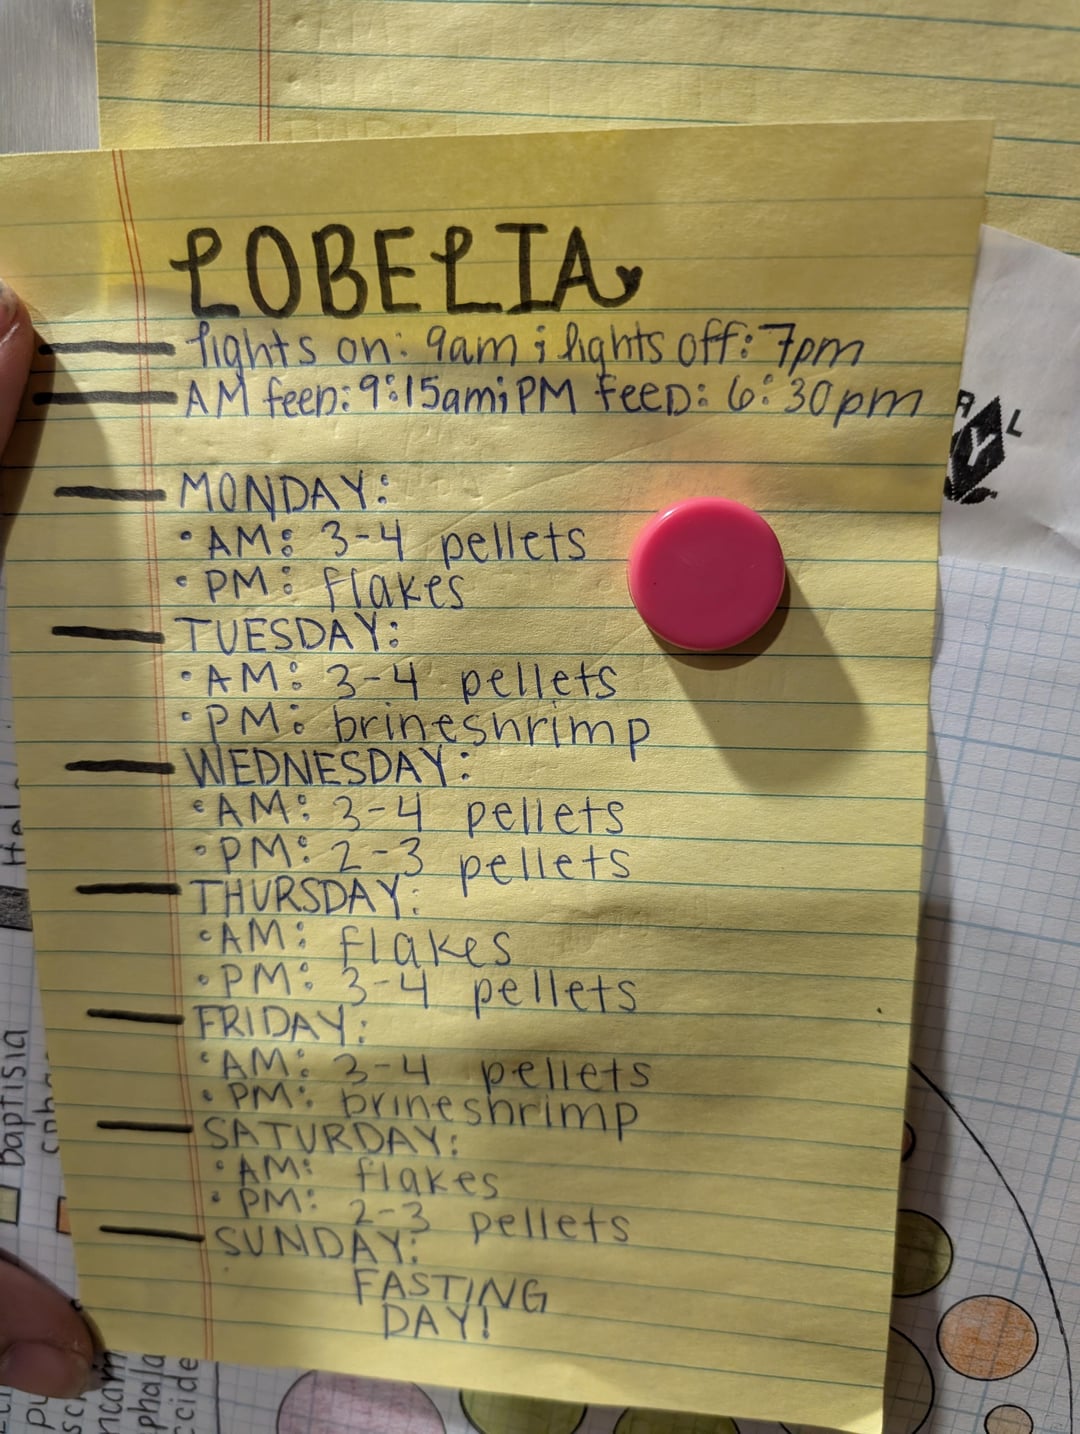 LOBELIA
lights on: 9am ; lights off: 7pm
AM feeD: 9:15am; PM FeeD: 6:30pm
MONDAY:
• AM: 3-4 pellets
• PM: flakes
TUESDAY:
• AM: 3-4 pellets
• PM: brineshrimp
WEDNESDAY:
• AM: 3-4 pellets
• PM: 2-3 pellets
THURSDAY:
• AM: flakes
• PM: 3-4 pellets
FRIDAY:
• AM: 3-4 pellets
• PM: brineshrimp
SATURDAY:
• AM: flakes
• PM: 2-3 pellets
SUNDAY:
FASTING
DAY!
Baptisia